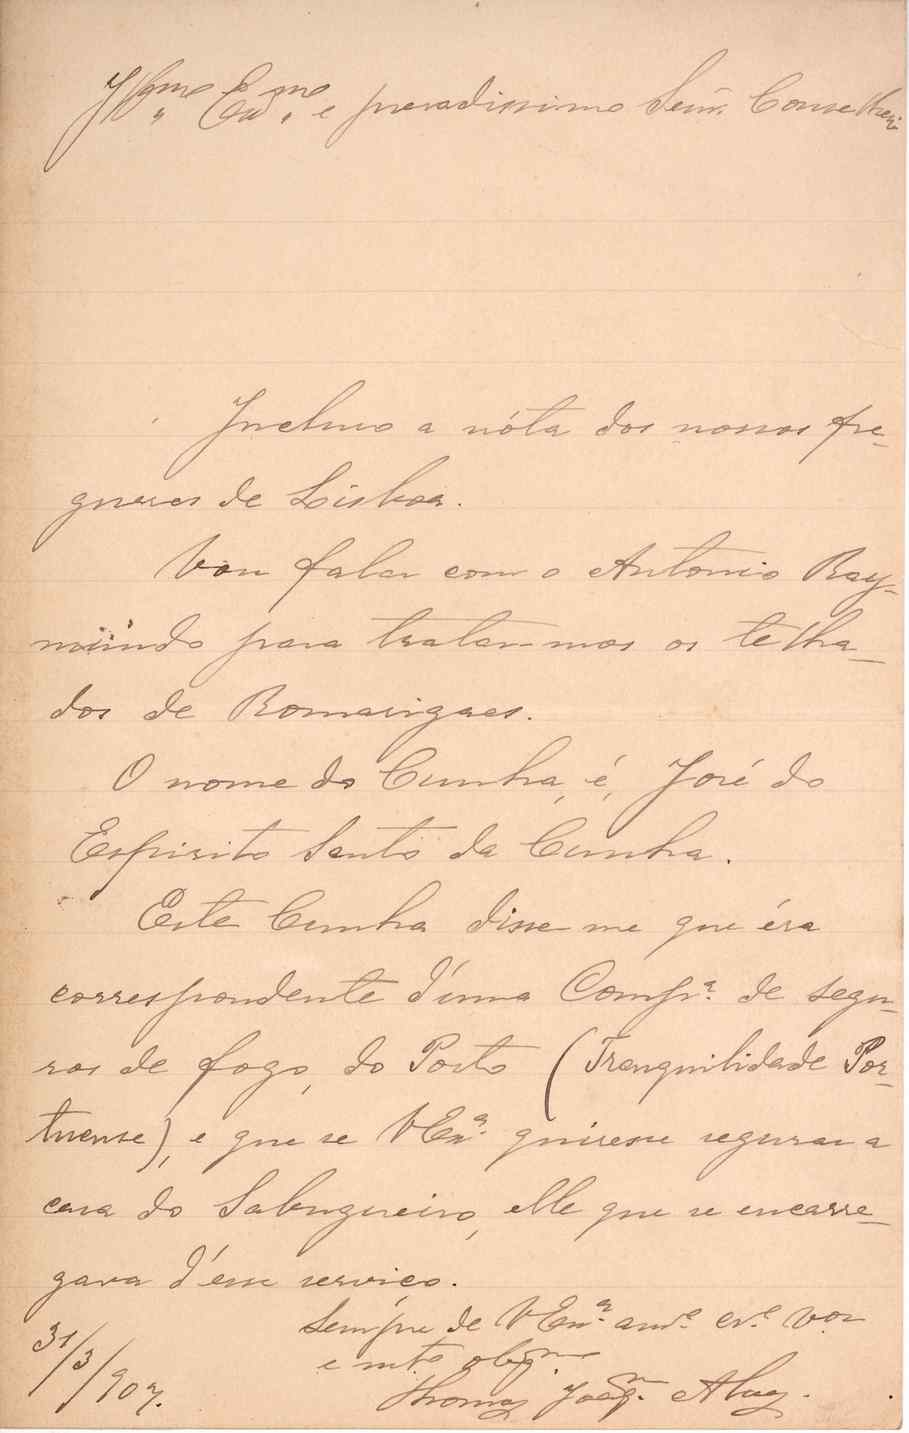 Illmo Exmo e presadissimo Senr. Conselhei
Incluso a nóta dos nossos fre-
guezes de Lisboa.
Vou falar com o Antonio Ray-
mundo para tratar-mos os telha-
dos de Romarigaes.
O nome do Cunha, é, José do
Espirito Santo da Cunha.
Este Cunha disse me que éra
correspondente d'uma Compa. de segu-
ros de fogo, do Porto (Tranquilidade Por-
tuense), e que se V Exa. quizesse segurar a
casa do Sabugueiro, elle que se encarre-
gava d'esse serviço.
Sempre de V Exa. amo. cro. vor
e mto. obrigmo
31/3/907.
Thomaz Joaqm.